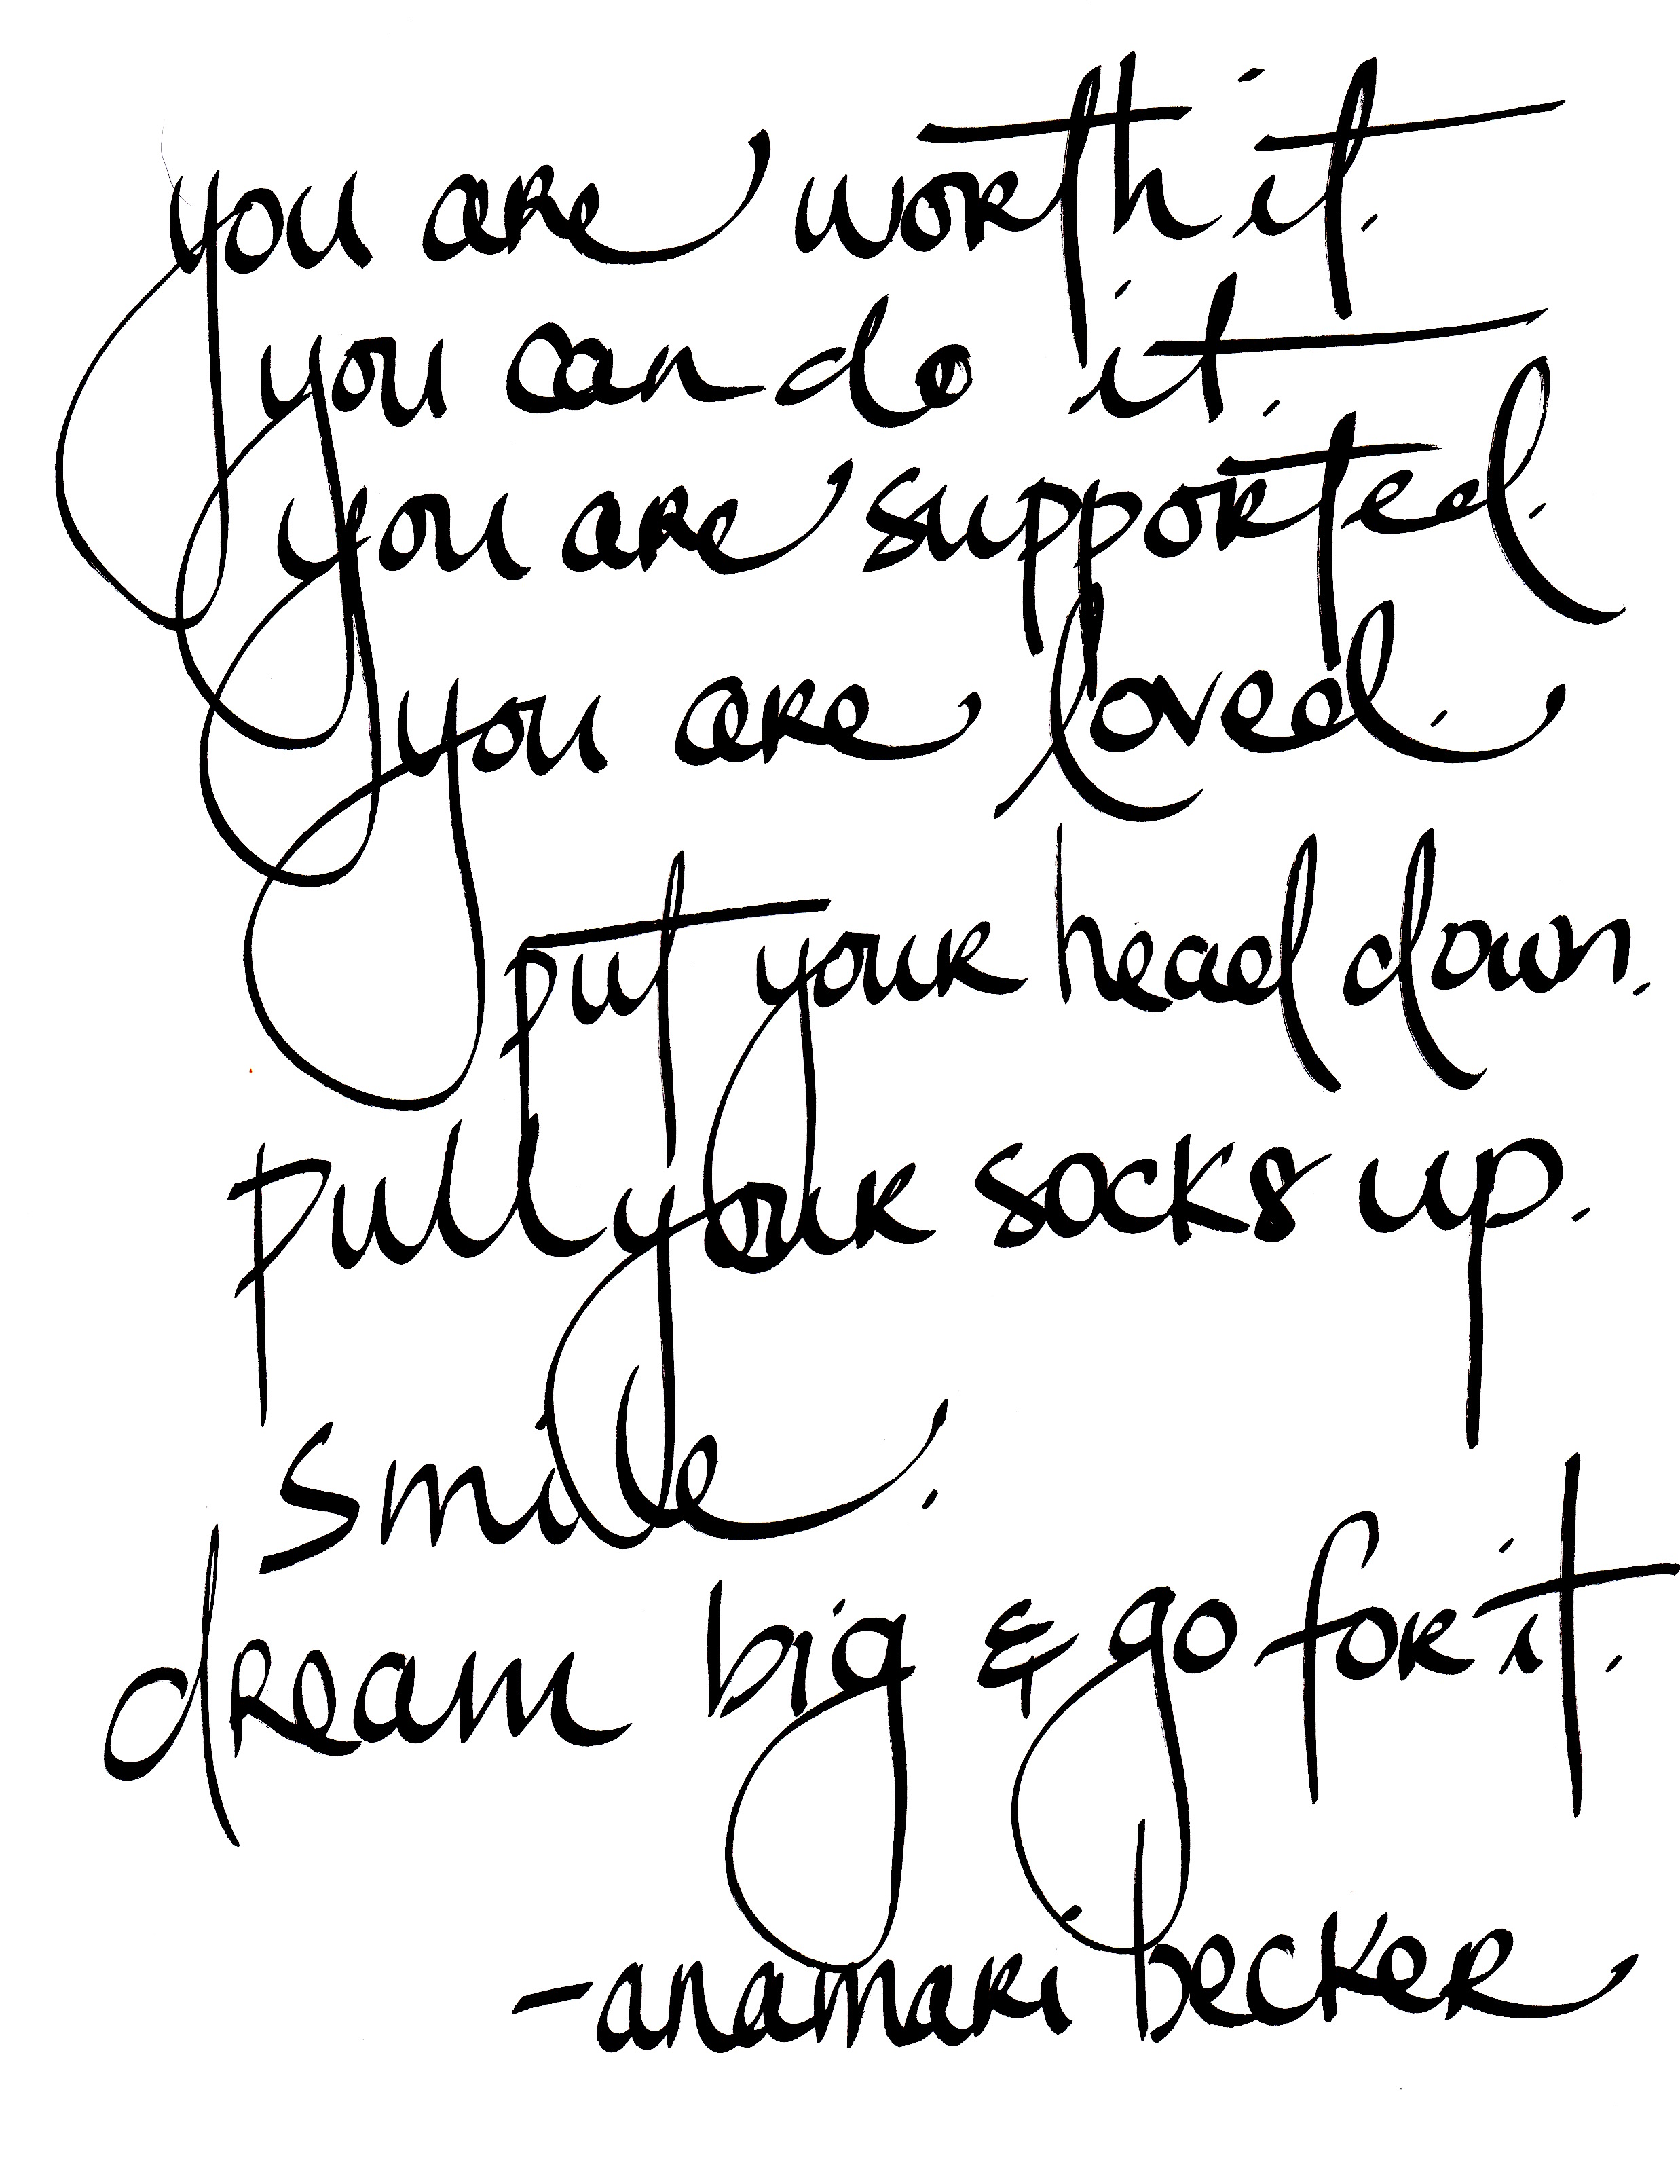 you are worth it.
you can do it.
you are supported.
you are loved.
put your head down.
pull your socks up.
smile.
dream big & go for it.
-anamari becker